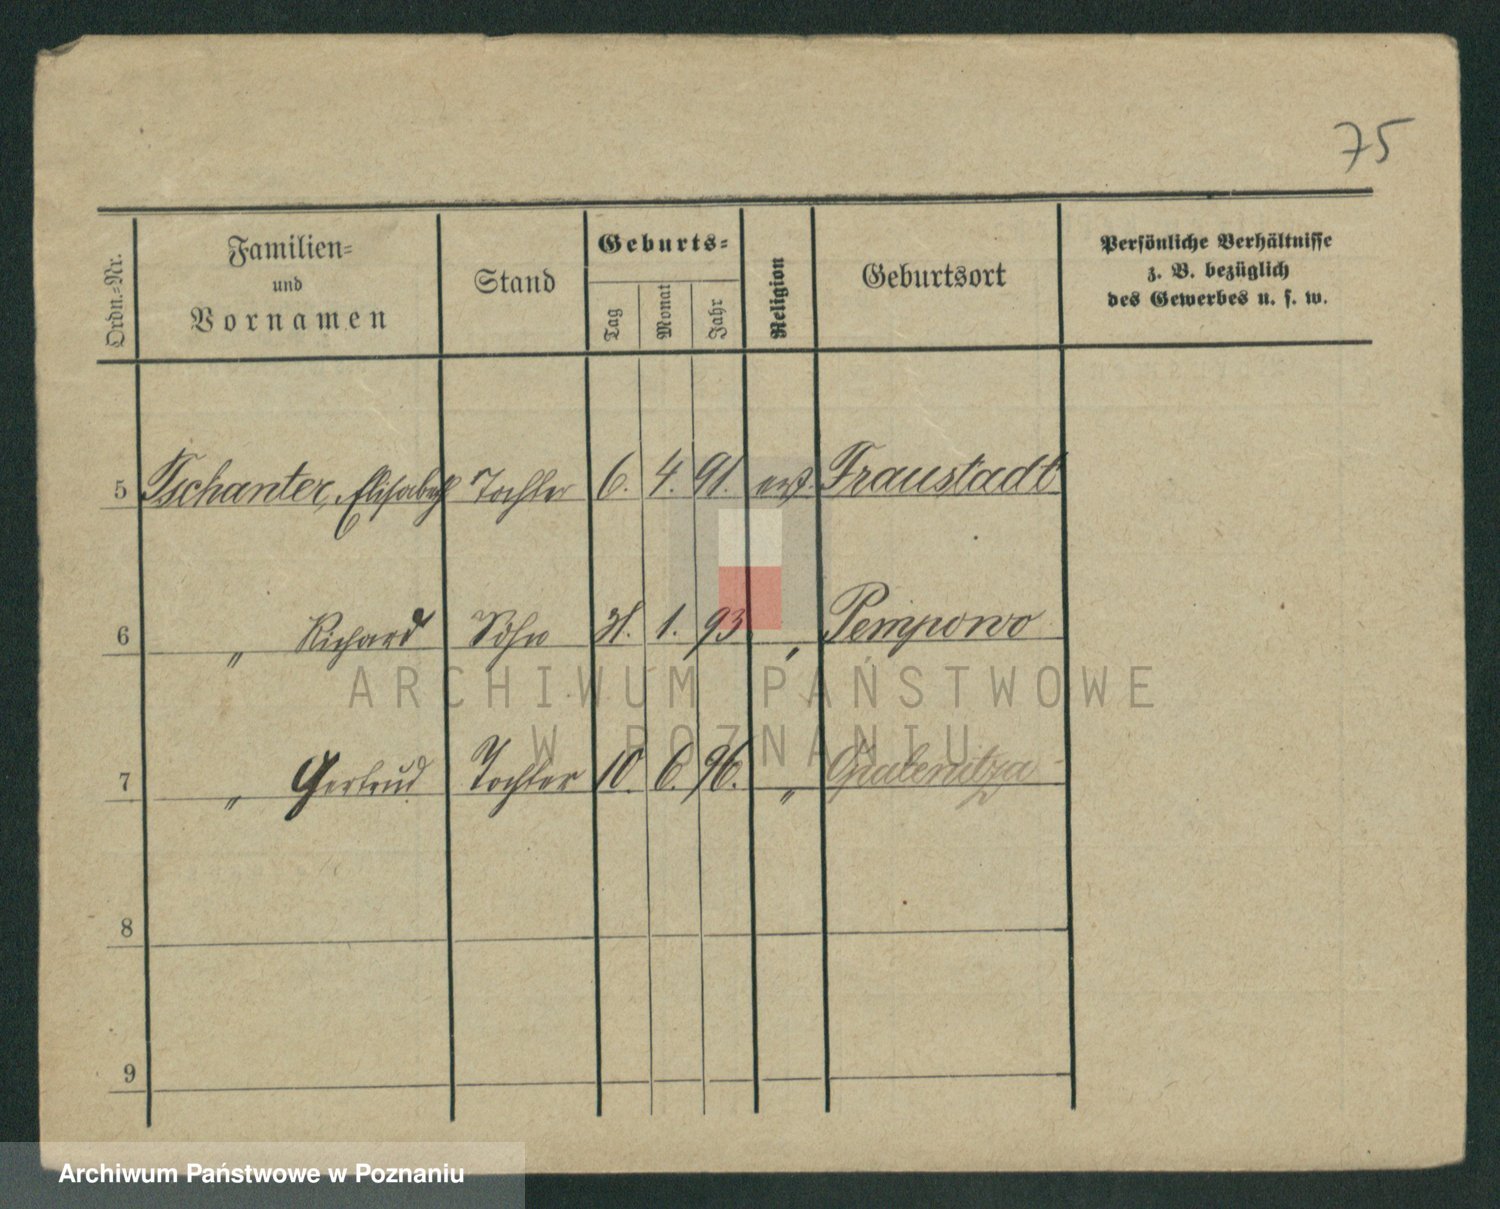 75
Ordn.-Nr. Familien- und Vornamen Stand Geburts- Tag Monat Jahr Religion Geburtsort Persönliche Verhältnisse z. B. bezüglich des Gewerbes u. s. w.
5 Tschanter, Elisabeth Tochter 6. 4. 91. Fraustadt
6 " Richard Sohn 31. 1. 93 " Pempowo
7 " Gertrud Tochter 10. 6. 96. " Opalenitza
8
9
ARCHIWUM PAŃSTWOWE
W POZNANIU
Archiwum Państwowe w Poznaniu